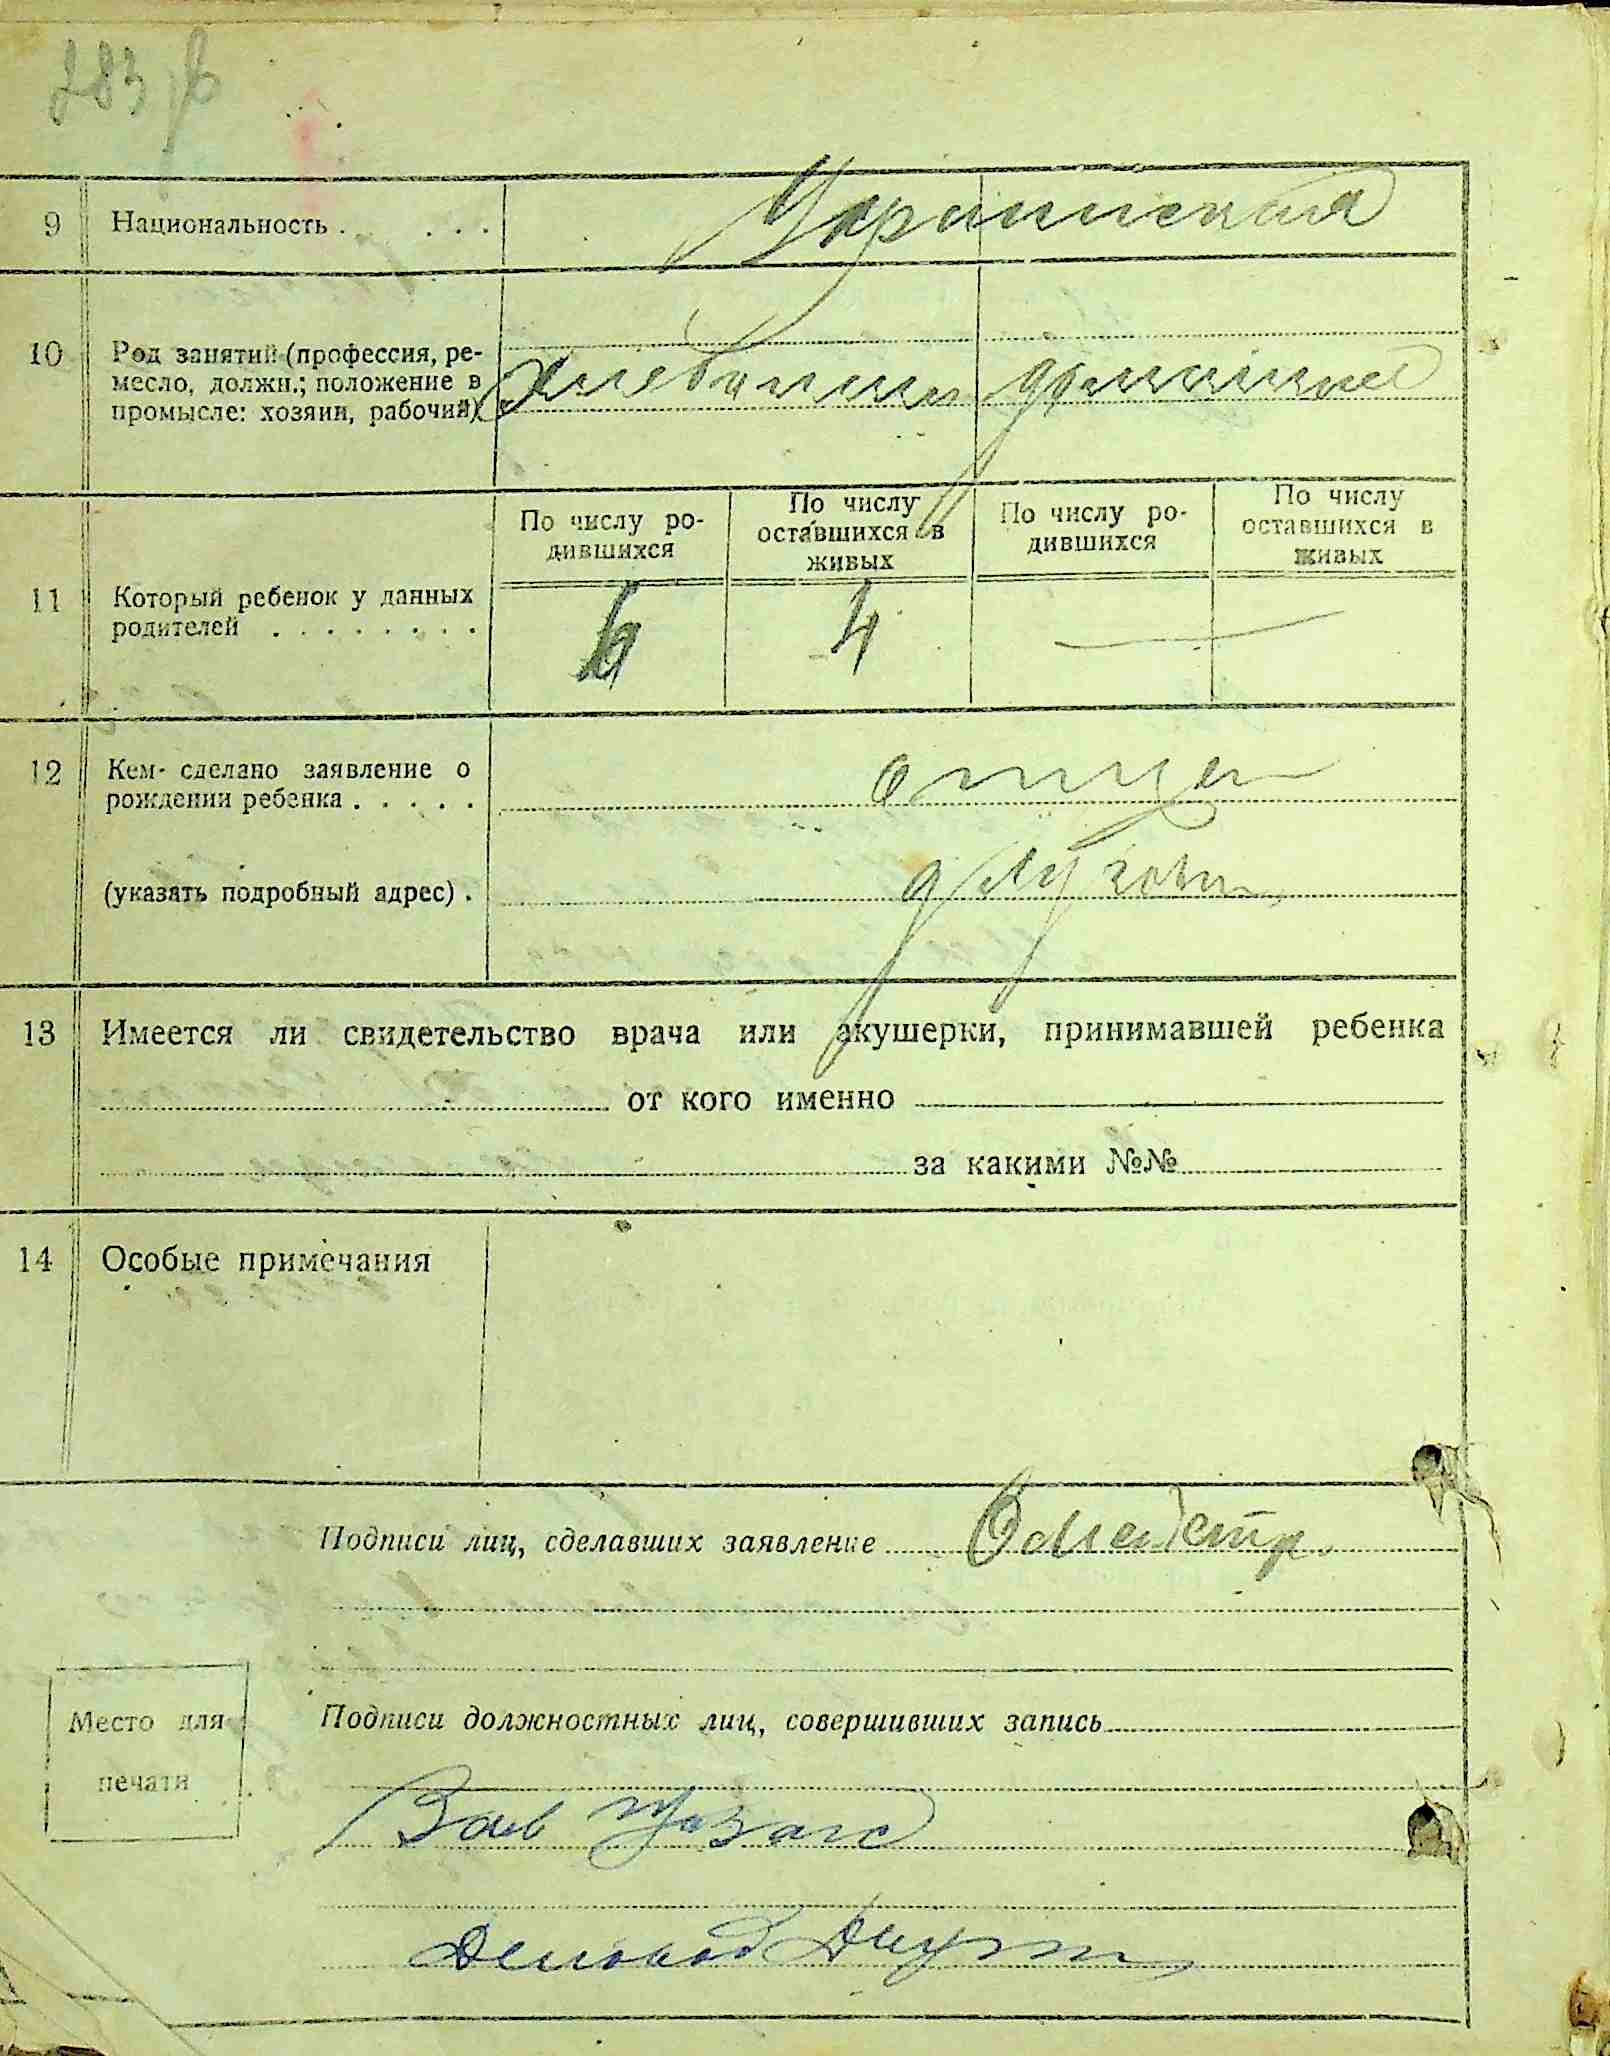 283
9 Национальность . . . . Украинская
10 Род занятий (профессия, ре-
месло, должн.; положение в
промысле: хозяин, рабочий)
хлебопашец домашнее
По числу ро-
дившихся
По числу
оставшихся в
живых
По числу ро-
дившихся
По числу
оставшихся в
живых
11 Который ребенок у данных
родителей . . . . . . . .
6 4 —
12 Кем сделано заявление о
рождении ребенка . . . . .
отцем
(указать подробный адрес) .
13 Имеется ли свидетельство врача или акушерки, принимавшей ребенка
от кого именно
за какими №№
14 Особые примечания
Подписи лиц, сделавших заявление
Место для
печати
Подписи должностных лиц, совершивших запись
Зав
Деловод